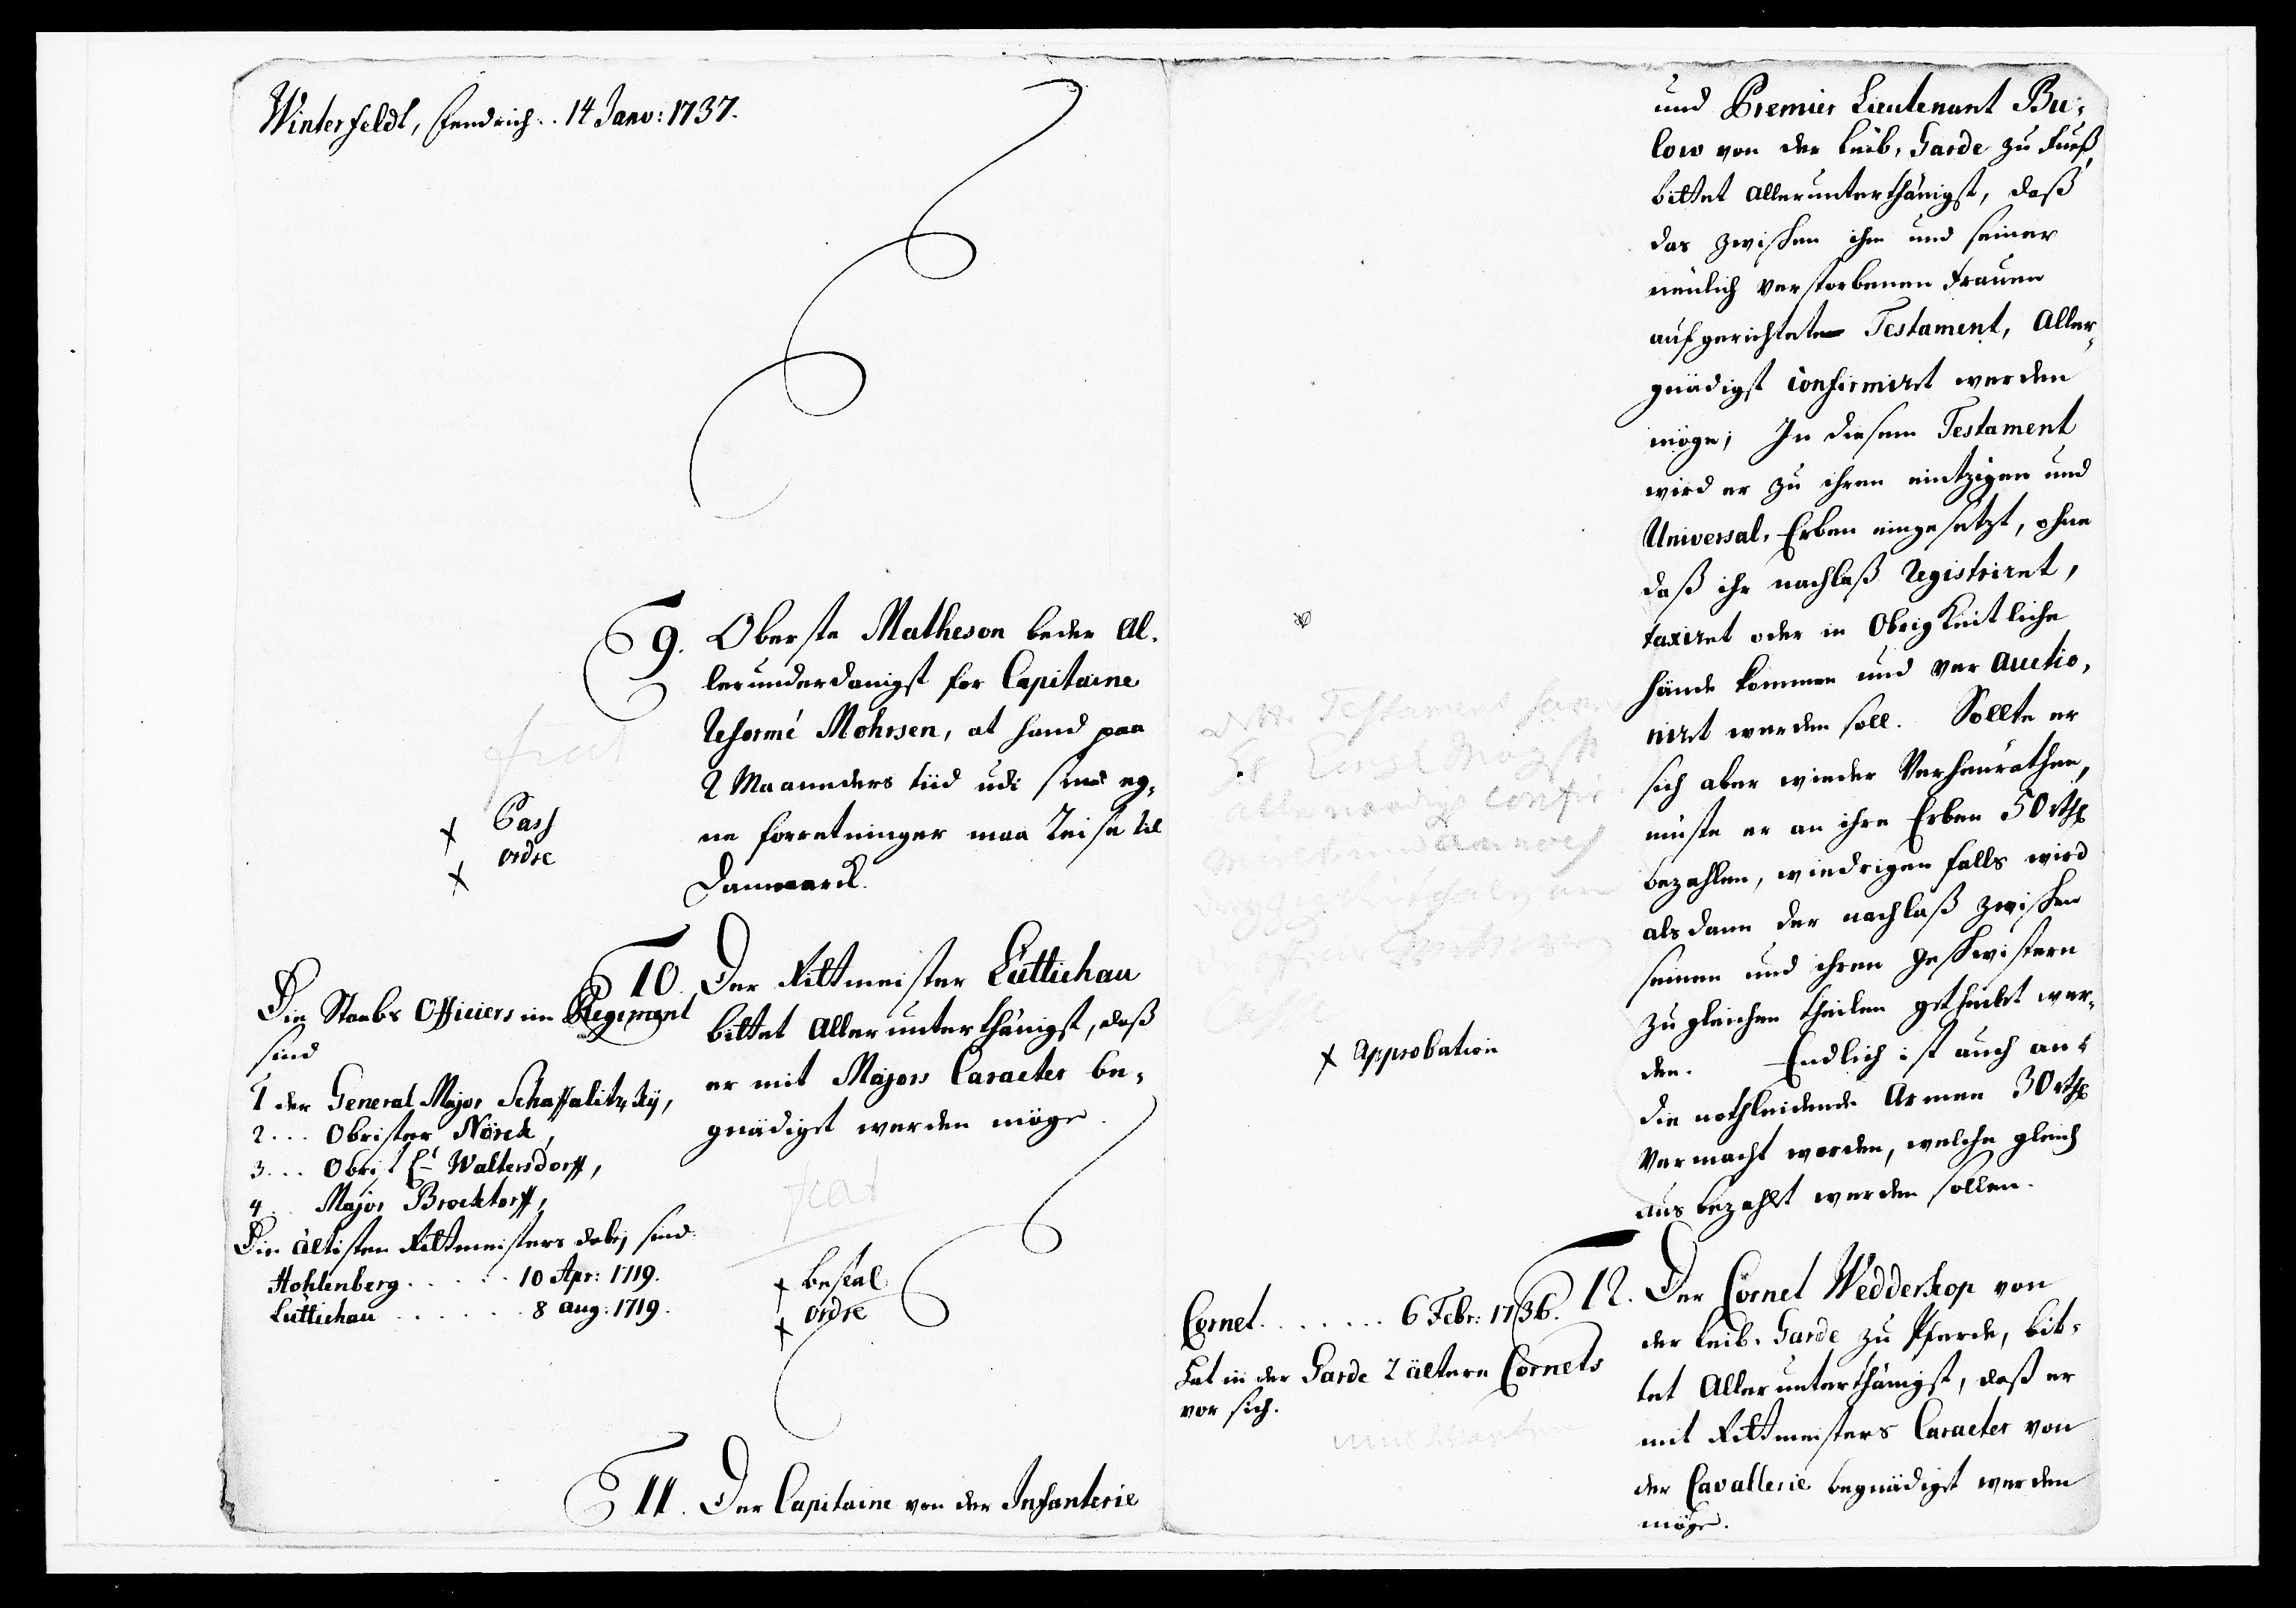 Winterfeldt, Fendrich.. 14 Janv: 1737.
9. Oberste Matheson beder Al-
lerunderdanigst for Capitaine
Reformé Mohrsen, at hand paa
2 Maanders tiid udi sine eg-
ne forretninger maa Reise til
Danmarck.
fiat
x Pass
x ordre
10. Der Rittmeister Lüttichau
bittet Allerunterthänigst, daß
er mit Majors Caracter be-
gnädiget werden möge.
Die Staabs Officiers im Regiment
sind
1 der General Major Schaffalitzky,
2... Obrister Nörck,
3... Obrist Lt Waltersdorff,
4.. Major Brocktorff,
Die ältisten Rittmeisters dabej sind
Hohlenberg..... 10 Apr: 1719.
Lüttichau...... 8 aug: 1719.
fiat
x bestal
x ordre
11. Der Capitaine von der Infanterie
und Premier Lieutenant Bu-
low von der Leib-Garde zu Fuß,
bittet Allerunterthänigst, daß
das zwischen ihm und seiner
neulich verstorbenen Frauen
aufgerichtete Testament, Aller-
gnädigst confirmiret werden
möge; In diesem Testament
wird er zu ihren eintzigen und
Universal-Erben eingesetzt, ohne
daß ihr nachlaß Registriret,
taxiret oder in Obrigkeitliche
hände kommen und ver auctio-
niret werden soll. Sollte er
sich aber wieder Verheurathen,
müste er an ihre Erben 50 rthl
bezahlen, wiedrigen falls wird
alsdann der nachlaß zwischen
seinen und ihren Geschwistern
zu gleichen theilen getheilet wer-
den. Endlich ist auch an
die nothleidende Armen 30 rthl
Vermacht worden, welche gleich
aus bezahlt werden sollen.
Testament
x Approbation
12. Der Cornet Wedderkop von
der Leib-Garde zu Pferde, bit-
tet Allerunterthänigst, daß er
mit Rittmeisters Caracter von
der Cavallerie begnädiget werden
möge.
Cornet....... 6 Febr: 1736.
Hat in der Garde 2 ältere Cornets
vor sich.